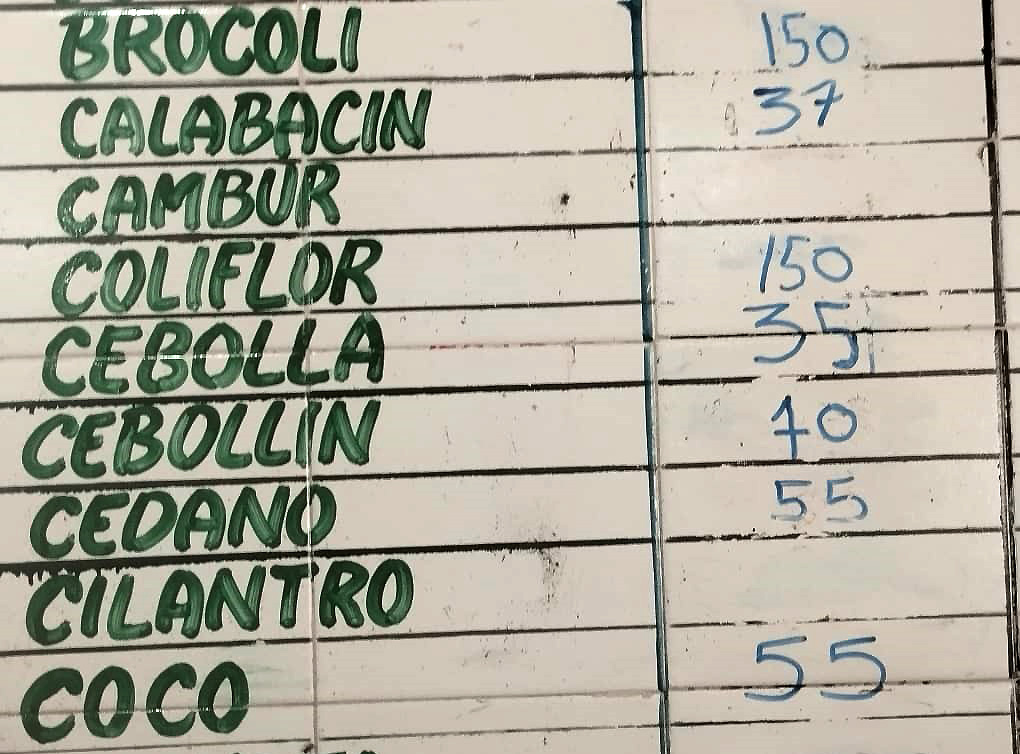 BROCOLI 150
CALABACIN 37
CAMBUR
COLIFLOR 150
CEBOLLA 35
CEBOLLIN 70
CEDANO 55
CILANTRO
COCO 55